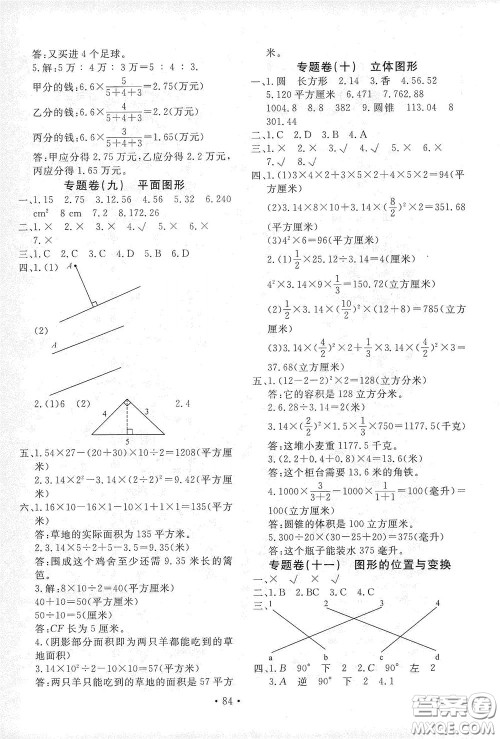 答:又买进 4 个足球。
5.解:5 万∶4 万∶3 万=5∶4∶3
甲分的钱:6.6×5/(5+4+3)=2.75(万元)
乙分的钱:6.6×5/(5+4+3)=2.2(万元)
丙分的钱:6.6×5/(5+4+3)=1.65(万元)
答:甲应分得 2.75 万元,乙应分得 2.2 万元,
丙应分得 1.65 万元。
专题卷(九) 平面图形
一、1.15 2.75 3.12.56 4.56 5.32 6.240
cm² 8 cm 7.2 8,172.26
二、1.× 2.× 3.√ 4.× 5.√ 6.×
7.×
三、1.C 2.C 3.C 4.D 5.B 6.D
四、1.(1)
A
(2)
A
2.(1)6 (2) 2.4
4 3
5
五、1.54×27-(20+30)×10÷2=1208(平方厘
米)
2.3.14×2²-3.14×(2÷2)²=9.42(平方
厘米)
六、1.16×10-16×1-10×1+1×1=135(平方
米)
答:草地的实际面积为 135 平方米。
2.3.14×5÷2+(5-3.5)=9.35(米)
答:围成这个鸡舍至少还需 9.35 米长的篱
笆。
3.解:8×10÷2=40(平方厘米)
40+10=50(平方厘米)
50÷10=5(厘米)
答:CF 长为 5 厘米。
4.(阴影部分面积即为两只羊都能吃到的草
地面积)
3.14×10²÷2-10×10=57(平方米)
答:两只羊只能吃到的草地的面积是 57 平方
米。
专题卷(十) 立体图形
一、1.圆 长方形 2.14 3.香 4.56.52
5.120 平方厘米 6.471 7.762.88
1004.8 8.8 382 9.圆锥 113.04 8
301.44
二、1.C 2.D 3.B 4.C 5.D
三、1.× 2.× 3.√ 4.√ 5.√
四、1.(1)3×4×3×3=108(平方厘米)
(2)3.14×8×4×2+3.14×(8/2)²×2=301.44
(平方厘米)
(3)4²×6=96(平方厘米)
2.(1)1/2×25.12÷3.14=4(厘米)
4²×3.14×9×1/3=150.72(立方厘米)
(2)1/2×3.14×(10/2)²×(8+12)=785(立方
厘米)
(3)3.14×(4/2)²×2+3.14×(4/2)²×3×1/3=
37.68(立方厘米)
五、1.(12-2-2)²×2=128(立方分米)
答:它的容积是 128 立方分米。
2.6.28÷3.14÷2=1(米)
3.14×1²×1.5×1/3×750=1177.5(千克)
答:这堆小麦重 1177.5 千克。
3.(2.2+0.4+0.8)×4=13.6(米)
答:这个柜台需要 13.6 米的角铁。
4.1000×3/(3+2)-1000×1/(1+1)=100(毫升)
答:圆锥的容积是 100 毫升。
5.300÷20×(30-25)+300=375(毫升)
答:这个瓶子能装水 375 毫升。
专题卷(十一) 图形的位置与变换
一、× √ × √
二、1.B 2.BC
三、
a b c d
四、1.B 90° 下 2 C 90° 左 2
2.A 逆 90° 下 2 4.1
· 84 ·